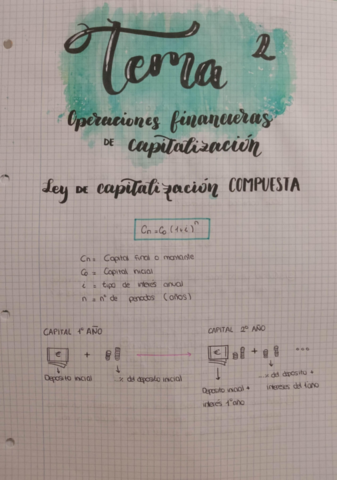 Tema 2
Operaciones financieras
DE capitalización
Ley DE capitalización COMPUESTA
Cn = Co (1+i)^n
Cn = Capital final o montante
Co = Capital inicial
i = tipo de interés anual
n = nº de periodos (años)
CAPITAL 1º AÑO
CAPITAL 2º AÑO
€ +
€ + ...
Deposito inicial
...% del deposito inicial
Deposito inicial +
interés 1º año
...% del deposito +
intereses del 1º año